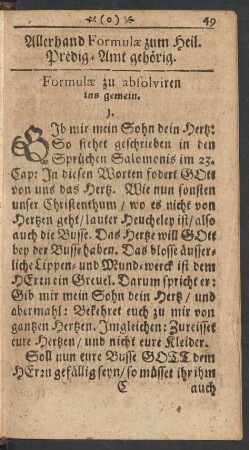 (o) 49
Allerhand Formulæ zum Heil.
Predig-Amt gehörig.
Formulæ zu absolviren
ins gemein.
1.
GIb mir mein Sohn dein Hertz:
So stehet geschrieben in den
Sprüchen Salomonis im 23.
Cap: In diesen Worten fodert GOtt
von uns das Hertz. Wie nun sonsten
unser Christenthum / wo es nicht von
Hertzen geht / lauter Heucheley ist / also
auch die Busse. Das Hertze will GOtt
bey der Busse haben. Das blosse äusser-
liche Lippen- und Mund-werck ist dem
HErrn ein Greuel. Darum spricht er:
Gib mir mein Sohn dein Hertz / und
abermahl: Bekehret euch zu mir von
gantzen Hertzen. Imgleichen: Zureisset
eure Hertzen / und nicht eure Kleider.
Soll nun eure Busse GOTT dem
HErrn gefällig seyn / so müsset ihr ihm
C auch